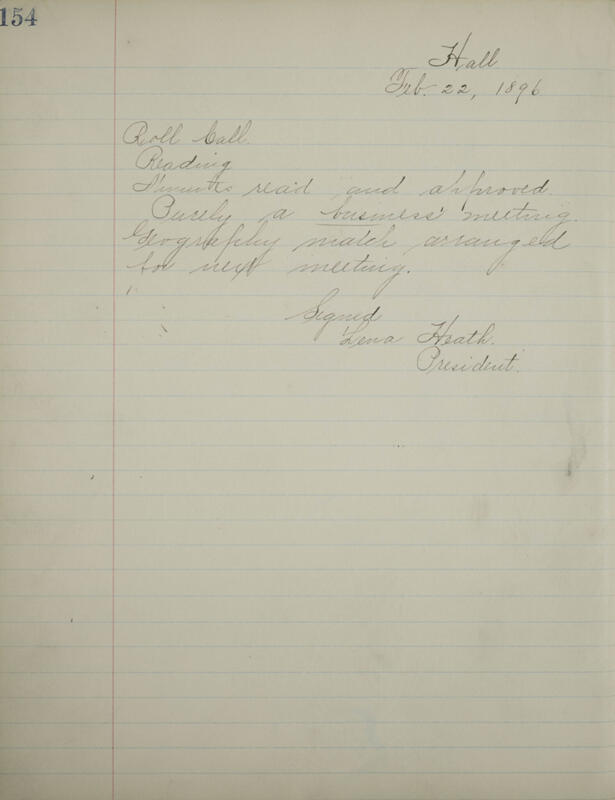 154
Hall
Feb. 22, 1896
Roll Call.
Reading
Minutes read and approved.
Purely a business meeting.
Geography match arranged
for next meeting.
Signed
Lena Heath.
President.